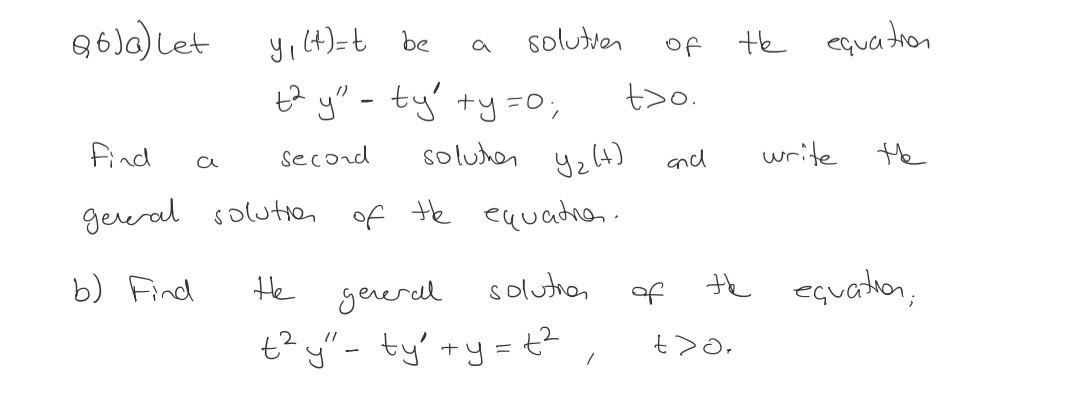 Q6)a) Let y₁(t)=t be a solution of the equation
t² y'' - ty' + y = 0; t>0.
Find a second solution y₂(t) and write the
general solution of the equation.
b) Find the general solution of the equation;
t² y'' - ty' + y = t² , t>0.